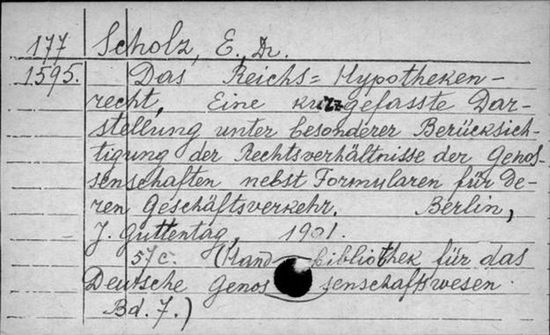 177 Scholz, E., Dr.
1595. Das Reichs=Hypotheken-
recht. Eine kurzgefasste Dar-
stellung unter besonderer Berücksich-
tigung der Rechtsverhältnisse der Genos-
senschaften nebst Formularen für de-
ren Geschäftsverkehr. Berlin,
J. Guttentag, 1901.
57c. (Hand bibliothek für das
Deutsche Genos senschaftswesen.
Bd. 7.)